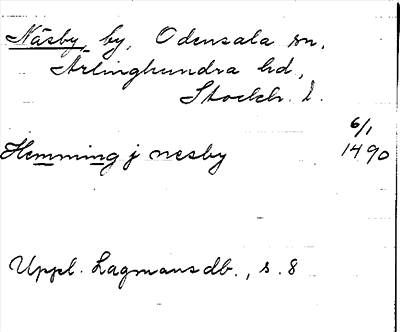 Näsby, by, Odensala sn,
Ärlinghundra hd,
Stockh. l.
6/1
Hemming j nesby 1490
Uppl. Lagmansdb., s. 8